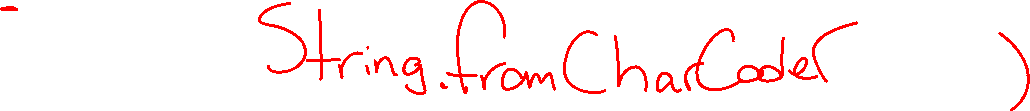 - String.fromCharCode( )